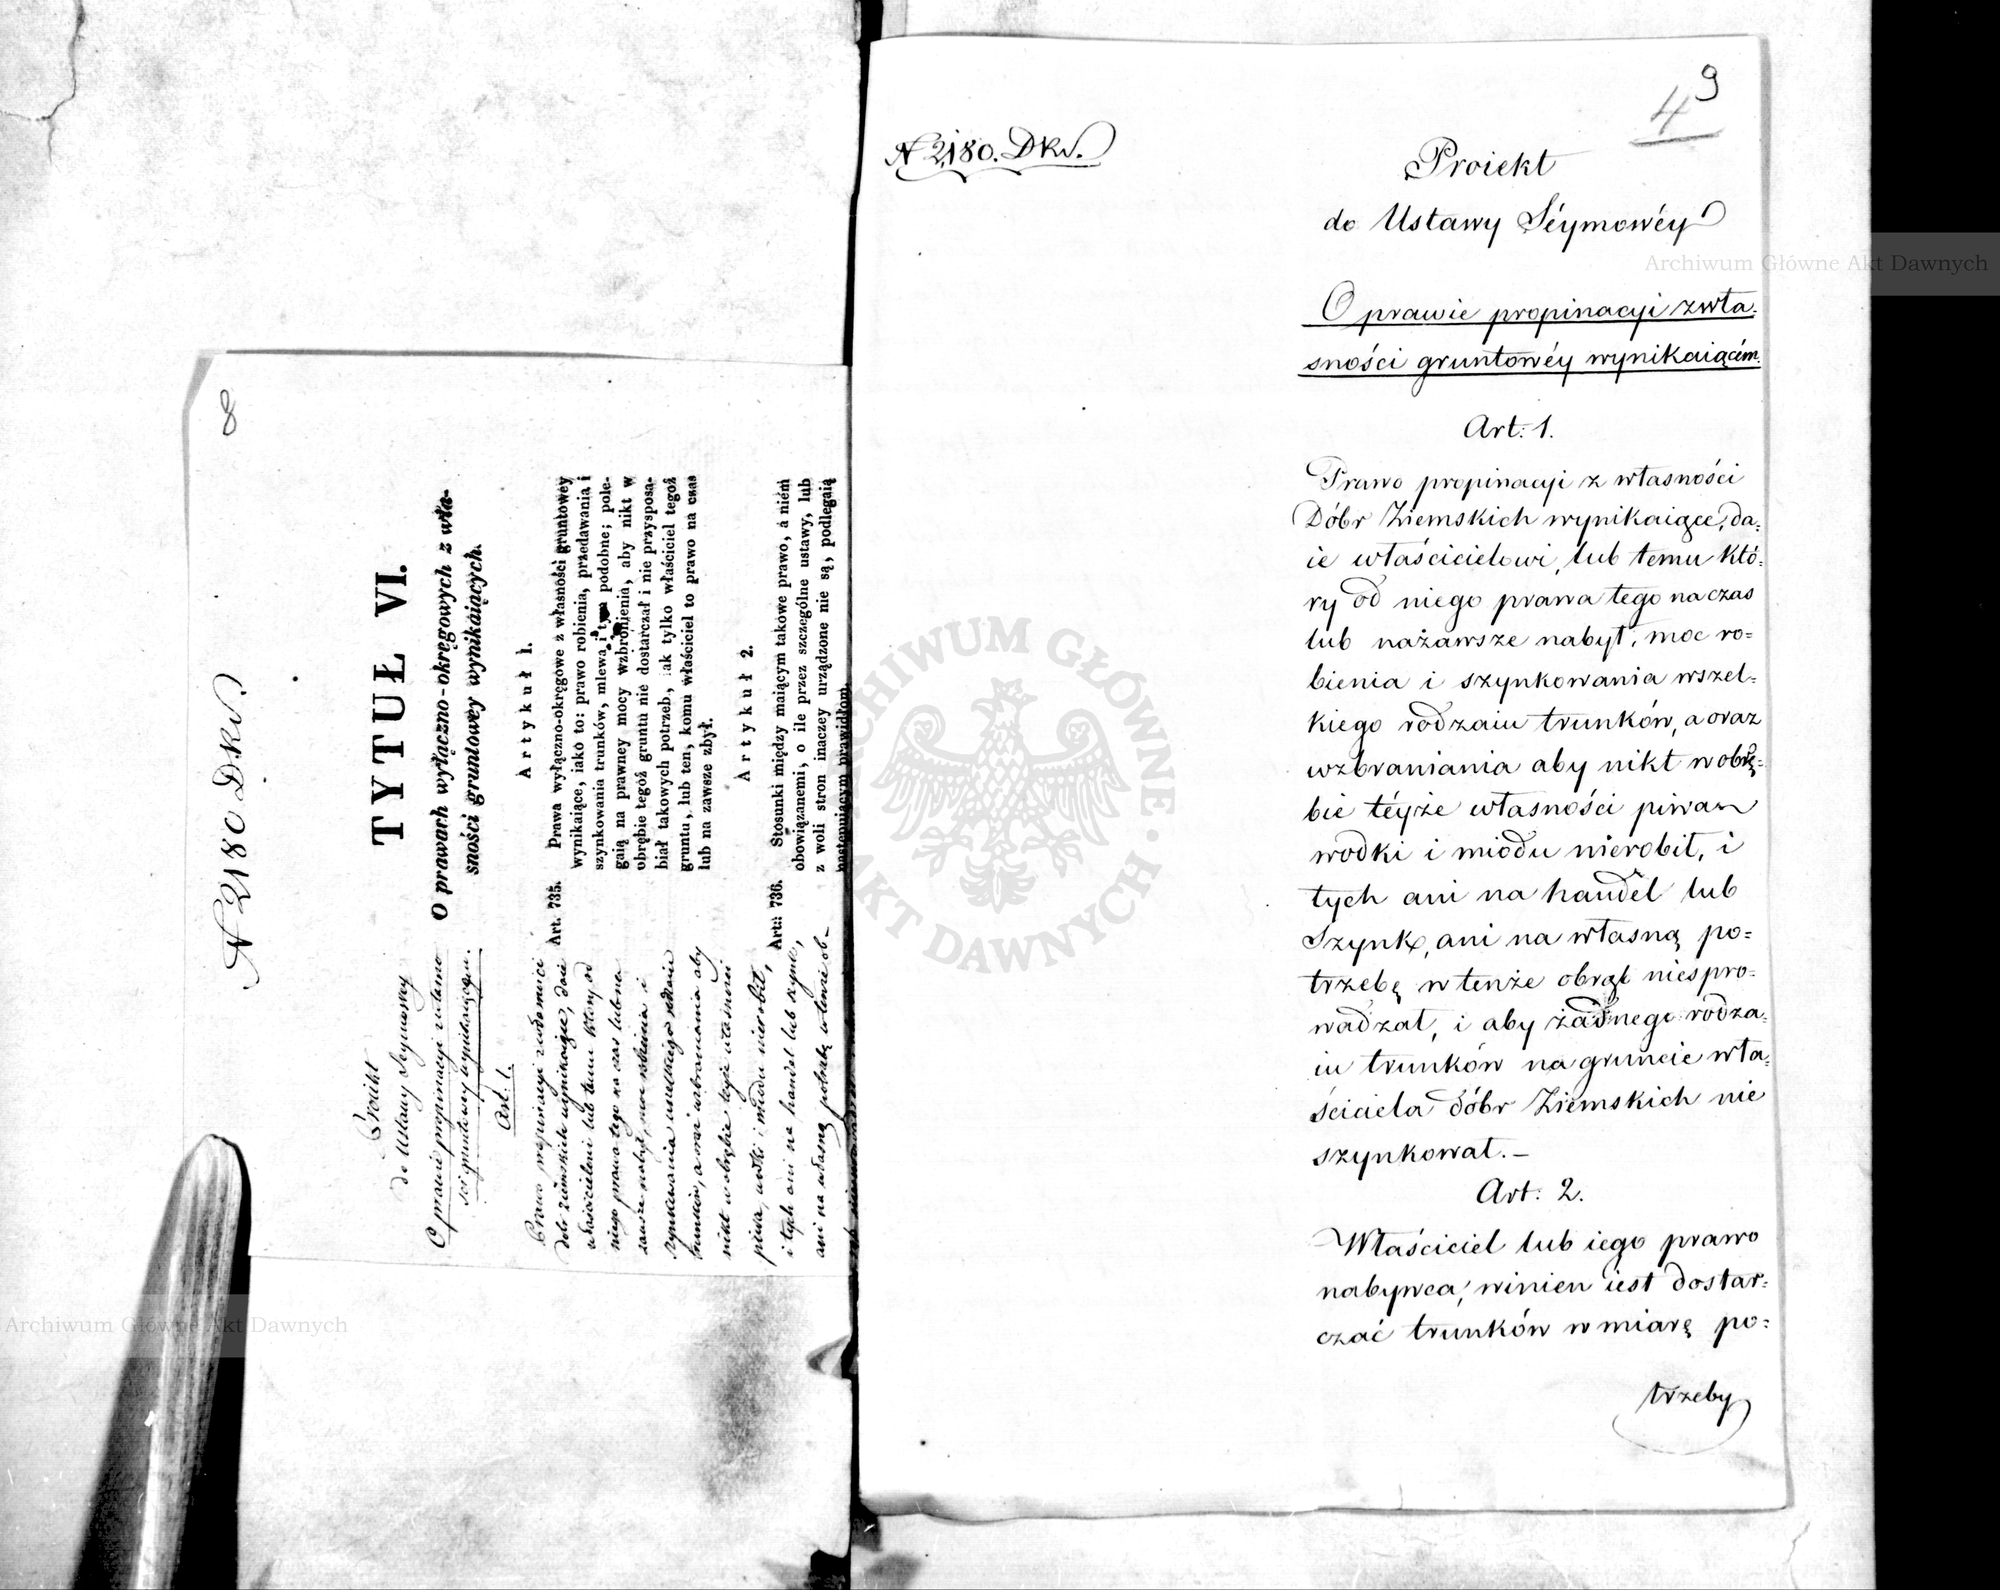 8
N 2180 Dkw.
TYTUŁ VI.
O prawach wyłączno-okręgowych z wła-
sności gruntowey wynikaiących.
Artykuł 1.
Art. 735. Prawa wyłączno-okręgowe z własności gruntowey
wynikaiące, iako to: prawo robienia, przedawania i
szynkowania trunków, mlewa i tym podobne; pole-
gaią na prawney mocy wzbronienia, aby nikt w
obrębie tegóż gruntu nie dostarczał i nie przysposa-
biał takowych potrzeb, iak tylko właściciel tegoż
gruntu, lub ten, komu właściciel to prawo na czas
lub na zawsze zbył.
Artykuł 2.
Art: 736. Stosunki między maiącym takowe prawo, a niém
obowiązanemi, o ile przez szczególne ustawy, lub
z woli stron inaczey urządzone nie są, podlegaią
następuiącym prawidłom.
Proiekt
do Ustawy Seymowey
O prawie propinacyi z własno
ści gruntowey wynikaiącym.
Art: 1.
Prawo propinacyi z własności
dobr ziemskich wynikaiące, daie
właścicielowi lub temu który od
niego prawa tego na czas lub na
zawsze nabył, moc robienia i
szynkowania wszelkiego rodzaiu
trunków, a oraz wzbraniania aby
nikt w obrębie teyże własności
piwa, wodki i miodu nie robił,
i tych ani na handel lub szynk,
ani na własną potrzebę w tenże ob-
9
4
N 2180. Dkw.
Proiekt
do Ustawy Séymowéy
O prawie propinacyi z wła-
sności gruntowéy wynikaiącém.
Art: 1.
Prawo propinacyi z własności
Dóbr Ziemskich wynikaiące, da=
ie właścicielowi, lub temu któ=
ry od niego prawa tego na czas
lub nazawsze nabył, moc ro=
bienia i szynkowania wszel=
kiego rodzaiu trunków, a oraz
wzbraniania aby nikt w obrę=
bie téyże własności piwa
wodki i miodu nierobił, i
tych ani na handel lub
Szynk, ani na własną po=
trzebę w tenże obrąb niespro=
wadzał, i aby żadnego rodza=
iu trunków na gruncie wła=
ściciela dóbr Ziemskich nie
szynkował.—
Art: 2.
Właściciel lub iego prawo
nabywca, winien iest dostar=
czać trunków w miarę po=
trzeby
Archiwum Główne Akt Dawnych
Archiwum Główne Akt Dawnych
ARCHIWUM GŁÓWNE · AKT DAWNYCH ·